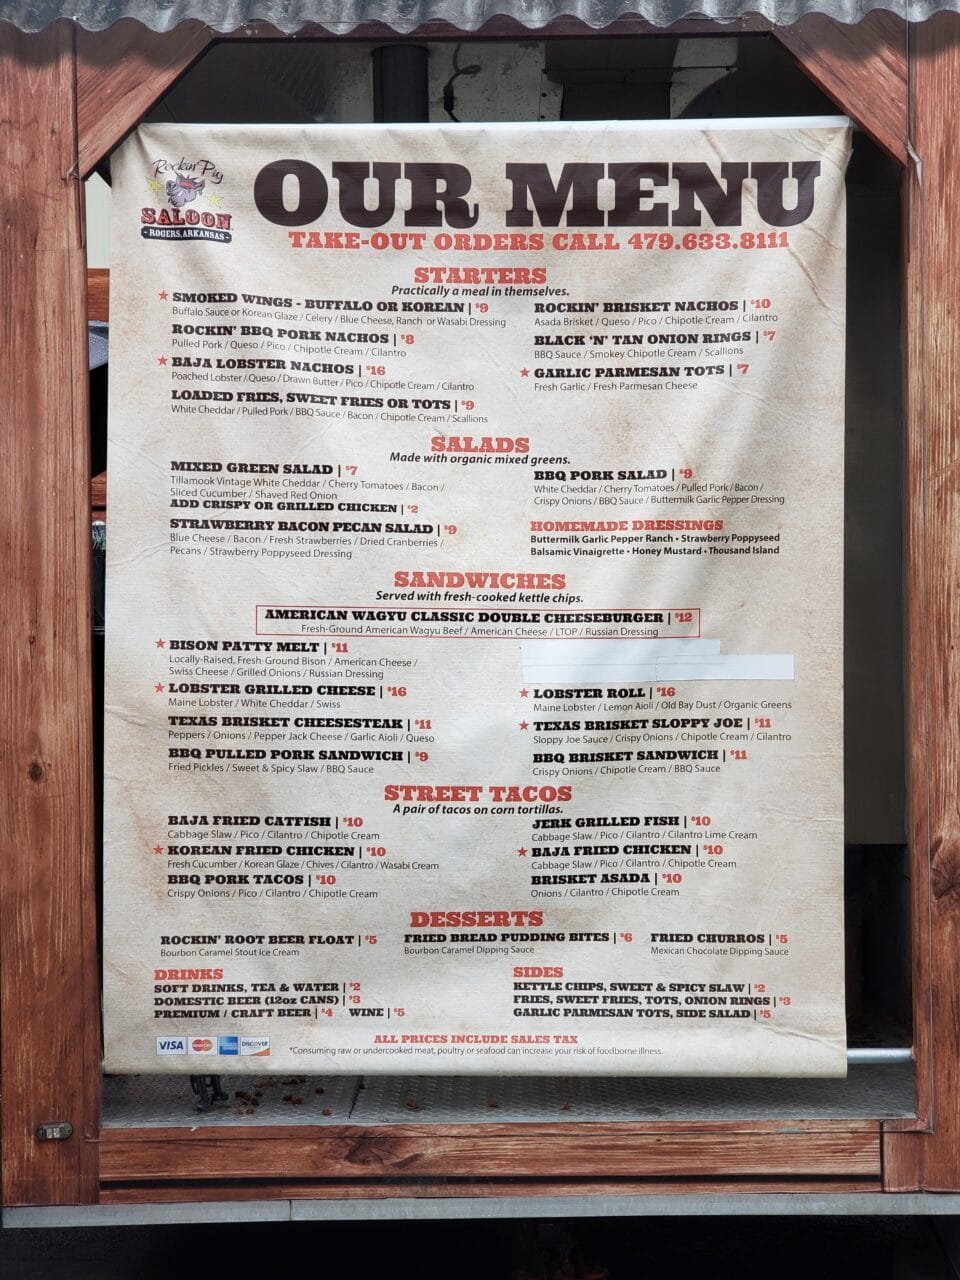 Rockin' Pig
SALOON
- ROGERS, ARKANSAS -
OUR MENU
TAKE-OUT ORDERS CALL 479.633.8111
STARTERS
Practically a meal in themselves.
★ SMOKED WINGS - BUFFALO OR KOREAN | $9
Buffalo Sauce or Korean Glaze / Celery / Blue Cheese, Ranch or Wasabi Dressing
ROCKIN' BBQ PORK NACHOS | $8
Pulled Pork / Queso / Pico / Chipotle Cream / Cilantro
★ BAJA LOBSTER NACHOS | $16
Poached Lobster / Queso / Drawn Butter / Pico / Chipotle Cream / Cilantro
LOADED FRIES, SWEET FRIES OR TOTS | $9
White Cheddar / Pulled Pork / BBQ Sauce / Bacon / Chipotle Cream / Scallions
ROCKIN' BRISKET NACHOS | $10
Asada Brisket / Queso / Pico / Chipotle Cream / Cilantro
BLACK 'N' TAN ONION RINGS | $7
BBQ Sauce / Smokey Chipotle Cream / Scallions
★ GARLIC PARMESAN TOTS | $7
Fresh Garlic / Fresh Parmesan Cheese
SALADS
Made with organic mixed greens.
MIXED GREEN SALAD | $7
Tillamook Vintage White Cheddar / Cherry Tomatoes / Bacon /
Sliced Cucumber / Shaved Red Onion
ADD CRISPY OR GRILLED CHICKEN | $2
STRAWBERRY BACON PECAN SALAD | $9
Blue Cheese / Bacon / Fresh Strawberries / Dried Cranberries /
Pecans / Strawberry Poppyseed Dressing
BBQ PORK SALAD | $9
White Cheddar / Cherry Tomatoes / Pulled Pork / Bacon /
Crispy Onions / BBQ Sauce / Buttermilk Garlic Pepper Dressing
HOMEMADE DRESSINGS
Buttermilk Garlic Pepper Ranch • Strawberry Poppyseed
Balsamic Vinaigrette • Honey Mustard • Thousand Island
SANDWICHES
Served with fresh-cooked kettle chips.
AMERICAN WAGYU CLASSIC DOUBLE CHEESEBURGER | $12
Fresh-Ground American Wagyu Beef / American Cheese / LTOP / Russian Dressing
★ BISON PATTY MELT | $11
Locally-Raised, Fresh-Ground Bison / American Cheese /
Swiss Cheese / Grilled Onions / Russian Dressing
★ LOBSTER GRILLED CHEESE | $16
Maine Lobster / White Cheddar / Swiss
TEXAS BRISKET CHEESESTEAK | $11
Peppers / Onions / Pepper Jack Cheese / Garlic Aioli / Queso
BBQ PULLED PORK SANDWICH | $9
Fried Pickles / Sweet & Spicy Slaw / BBQ Sauce
★ LOBSTER ROLL | $16
Maine Lobster / Lemon Aioli / Old Bay Dust / Organic Greens
★ TEXAS BRISKET SLOPPY JOE | $11
Sloppy Joe Sauce / Crispy Onions / Chipotle Cream / Cilantro
BBQ BRISKET SANDWICH | $11
Crispy Onions / Chipotle Cream / BBQ Sauce
STREET TACOS
A pair of tacos on corn tortillas.
BAJA FRIED CATFISH | $10
Cabbage Slaw / Pico / Cilantro / Chipotle Cream
★ KOREAN FRIED CHICKEN | $10
Fresh Cucumber / Korean Glaze / Chives / Cilantro / Wasabi Cream
BBQ PORK TACOS | $10
Crispy Onions / Pico / Cilantro / Chipotle Cream
JERK GRILLED FISH | $10
Cabbage Slaw / Pico / Cilantro / Cilantro Lime Cream
★ BAJA FRIED CHICKEN | $10
Cabbage Slaw / Pico / Cilantro / Chipotle Cream
BRISKET ASADA | $10
Onions / Cilantro / Chipotle Cream
DESSERTS
ROCKIN' ROOT BEER FLOAT | $5
Bourbon Caramel Stout Ice Cream
FRIED BREAD PUDDING BITES | $6
Bourbon Caramel Dipping Sauce
FRIED CHURROS | $5
Mexican Chocolate Dipping Sauce
DRINKS
SOFT DRINKS, TEA & WATER | $2
DOMESTIC BEER (12oz CANS) | $3
PREMIUM / CRAFT BEER | $4 WINE | $5
SIDES
KETTLE CHIPS, SWEET & SPICY SLAW | $2
FRIES, SWEET FRIES, TOTS, ONION RINGS | $3
GARLIC PARMESAN TOTS, SIDE SALAD | $5
VISA MasterCard AMERICAN EXPRESS DISCOVER
ALL PRICES INCLUDE SALES TAX
*Consuming raw or undercooked meat, poultry or seafood can increase your risk of foodborne illness.